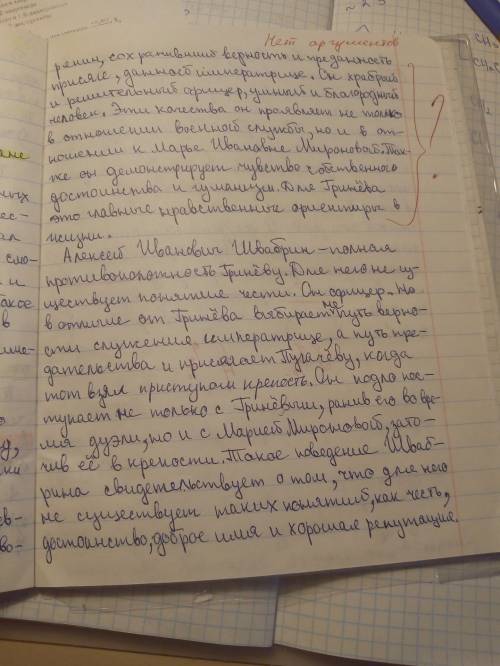 Нет аргументов
рении, сохранивший верность и преданность
присяге, данной императрице. Он храбрый
и решительный офицер, умный и благородный
человек. Эти качества он проявляет не только
в отношении военной службы, но и в от-
ношении к Марье Ивановне Мироновой. Так-
же он демонстрирует чувство собственного
достоинства и гуманизм. Для Гринёва
это главные нравственные ориентиры в
жизни.
?
Алексей Иванович Швабрин – полная
противоположность Гринёву. Для него не су-
ществует понятие чести. Он офицер. Но
в отличие от Гринёва выбирает не путь верно-
сти служения императрице, а путь пре-
дательства и присягает Пугачёву, когда
тот взял приступом крепость. Он подло пос-
тупает не только с Гринёвым, ранив его во вре-
мя дуэли, но и с Марией Мироновой, зато-
чив её в крепости. Такое поведение Шваб-
рина свидетельствует о том, что для него
не существует таких понятий, как честь,
достоинство, доброе имя и хорошая репутация.